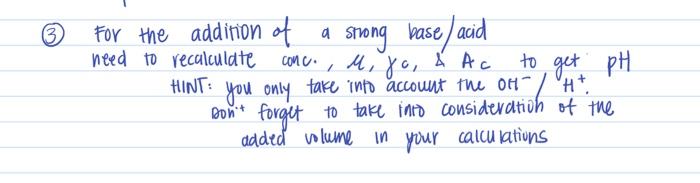 ③ For the addition of a strong base/acid
need to recalculate conc., μ, γc, & Ac to get pH
HINT: you only take into account the OH⁻/H⁺.
Don't forget to take into consideration of the
added volume in your calculations